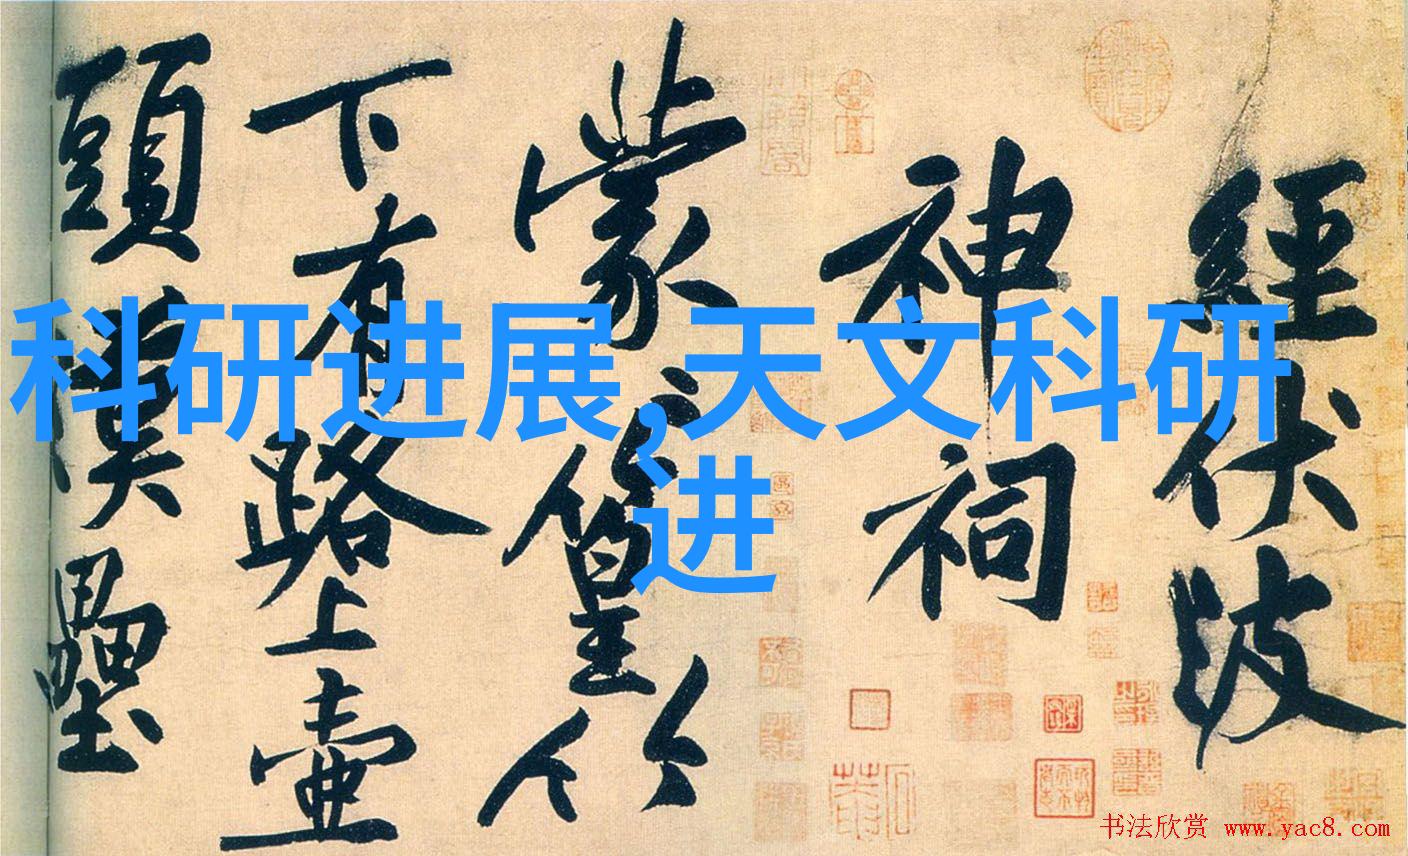 科研进展,天文科研
进
經伏波
神祠
蒙〻篁竹
下有路上壺
頭漢壘
书法欣赏 www.yac8.com